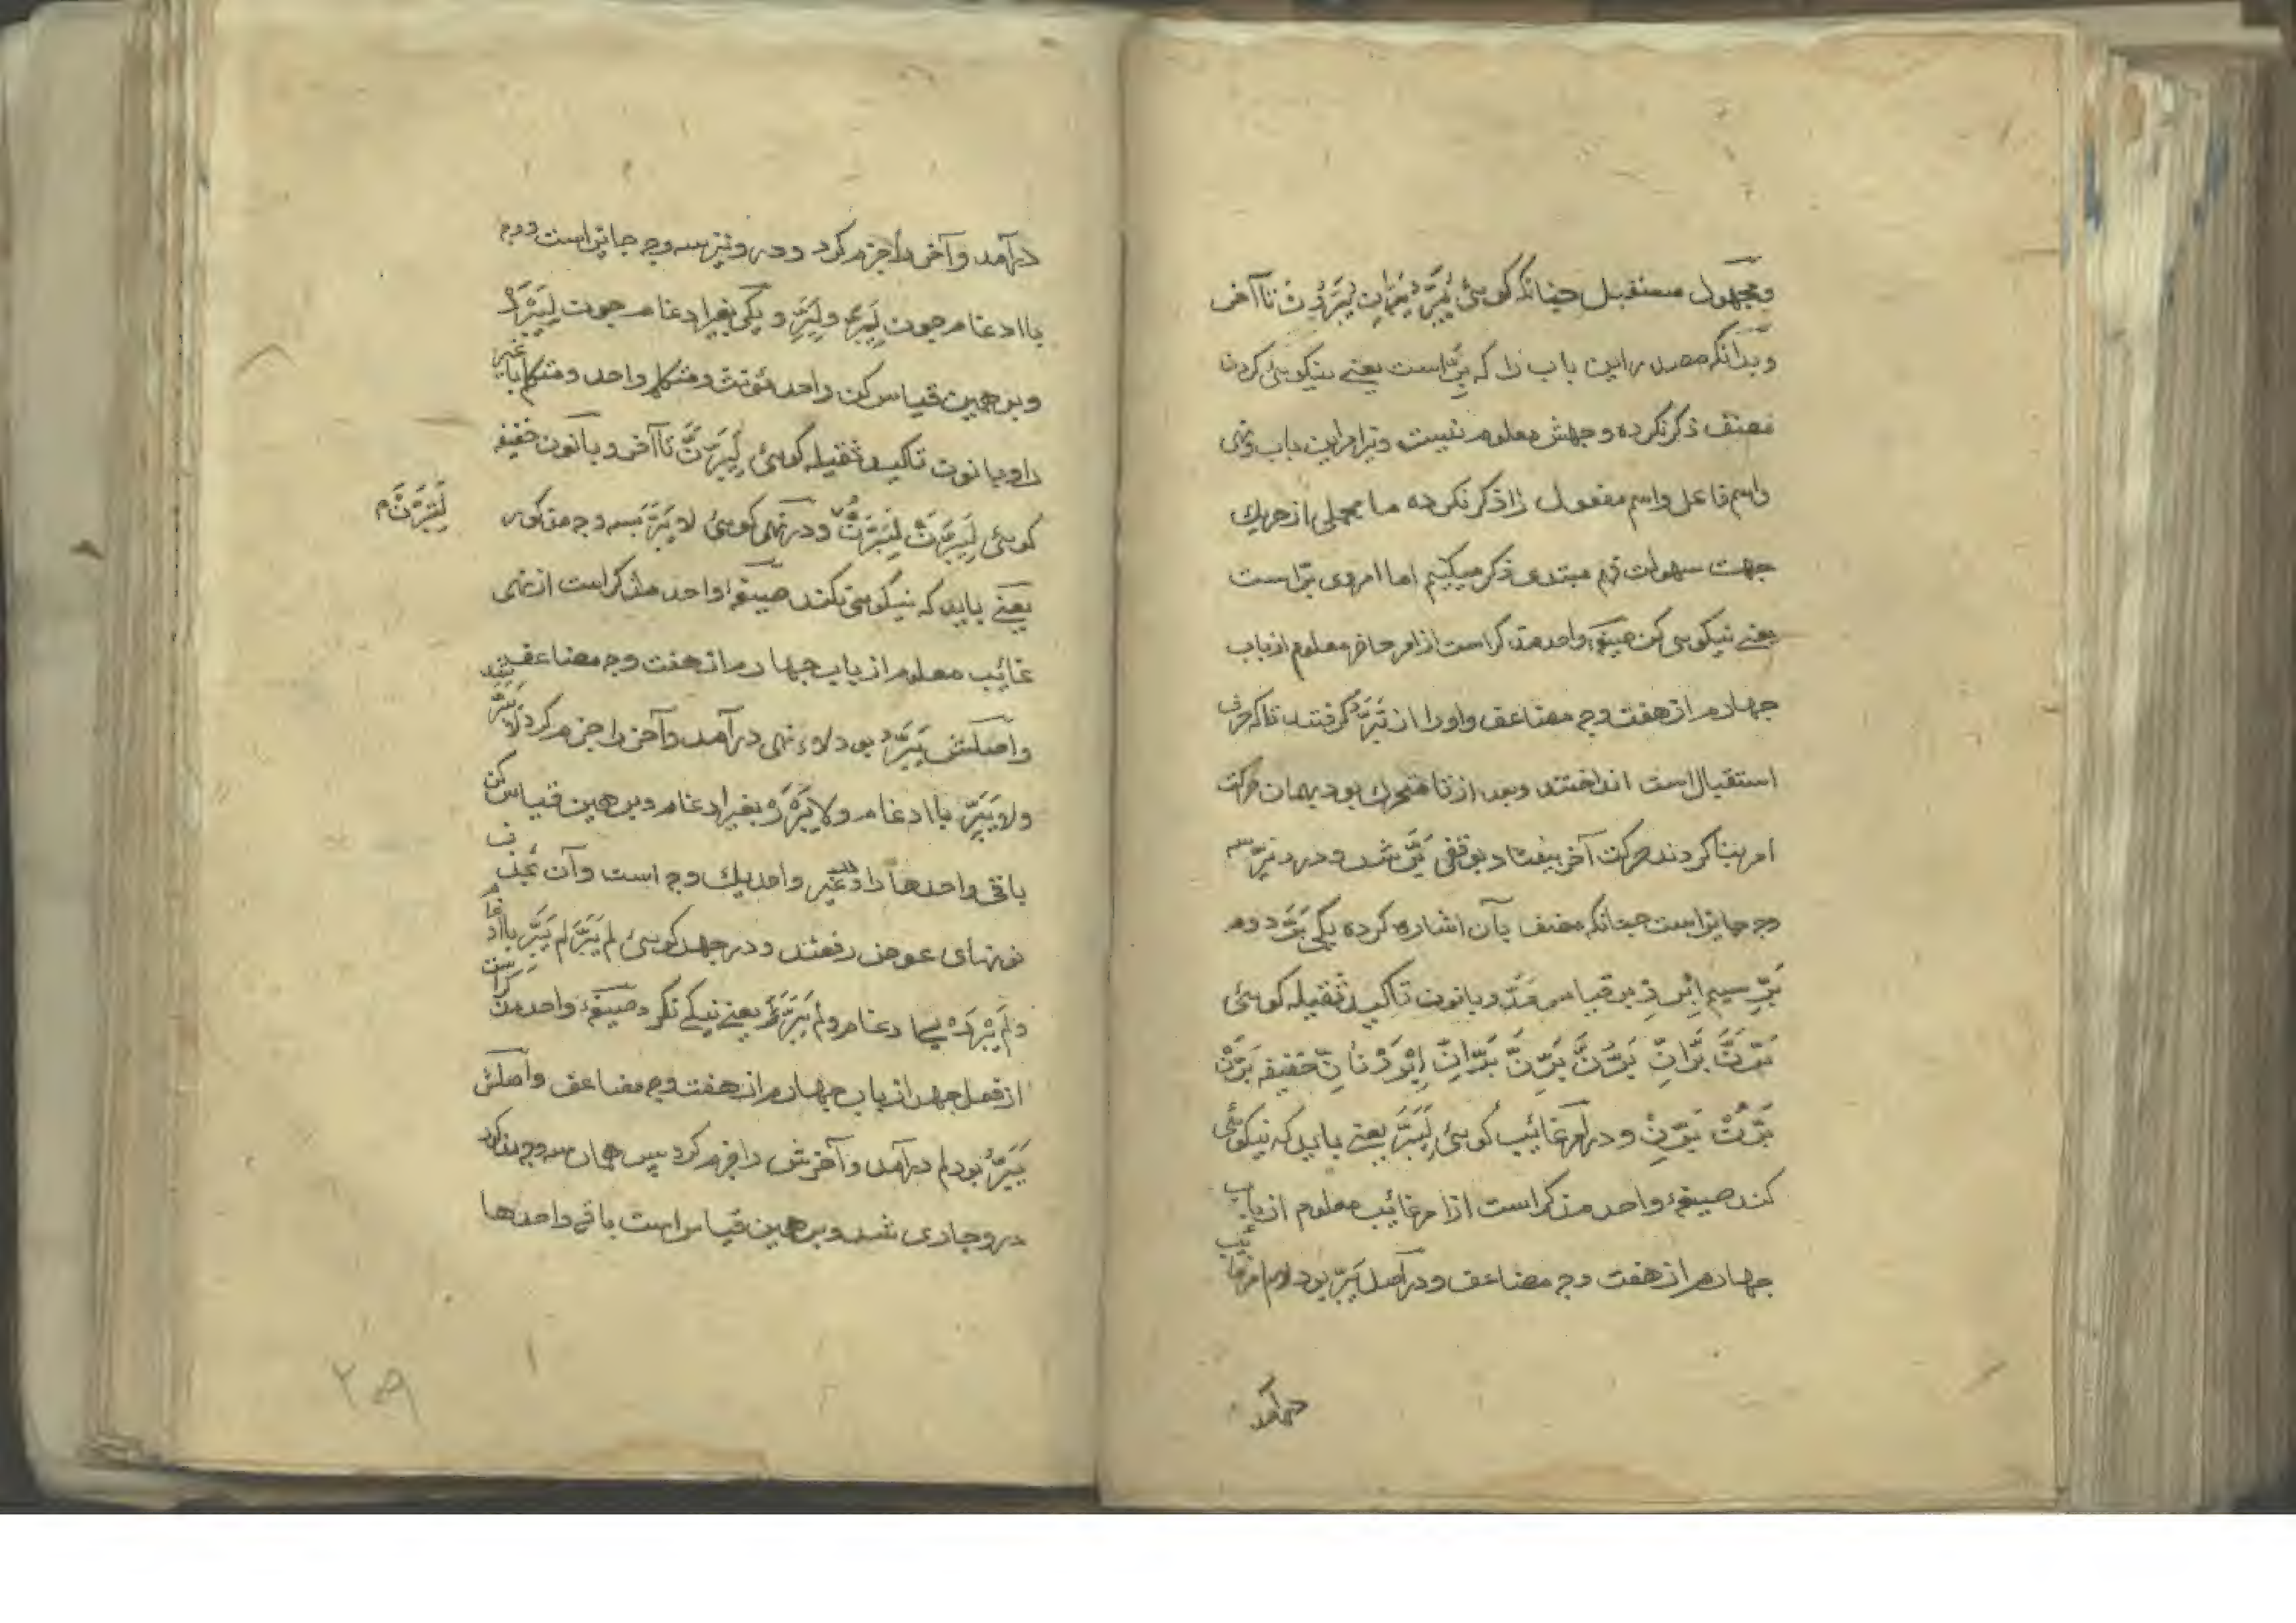 ومجهول مستقبل چنانکه گوئی یُبَرُّ یُبَرَّانِ یُبَرُّونَ تا آخر
وبدانکه مصدر این باب را که بِرّ است یعنی نیکوئی کردن
مصنف ذکر نکرده وجهش معلوم نیست ونیز امر این باب ونهی
واسم فاعل واسم مفعول را ذکر نکرده ما مجملی از هر یک
جهت سهولت فهم مبتدی ذکر میکنیم اما امر وی بَرَّ است
یعنی نیکوئی کن صیغهٔ واحد مذکر است از امر حاضر معلوم از باب
چهارم از هفت وجه مضاعف واو را از تَبَرُّ گرفتند تا که حرف
استقبال است انداختند وبعد از تا متحرک بود بهمان حرکت
امر بنا کردند حرکت آخر بیفتاد بوقفی بَرَّ شد ودرو نیز سه
وجه جایز است چنانکه مصنف بآن اشاره کرده یکی بَرَّ دوم
بَرِّ سیم اِبْرَرْ بر قیاس مَدَّ وبا نون تاکید ثقیله گوئی
بَرَّنَّ بَرَّانِّ بَرُّنَّ بَرِّنَّ بَرَّانِّ اِبْرَرْنَانِّ خفیفه بَرَّنْ
بَرُّنْ بَرِّنْ ودر امر غائب گوئی لِیَبَرَّ یعنی باید که نیکوئی
کند صیغهٔ واحد مذکر است از امر غائب معلوم از باب
چهارم از هفت وجه مضاعف ودر اصل یَبَرُّ بود لام امر غائب
درآمد
درآمد وآخر را جزم کرد ودرو نیز سه وجه جایز است دو وجه
با ادغام چون لِیَبَرَّ ولِیَبَرِّ ویکی بغیر ادغام چون لِیَبْرَرْ
وبر همین قیاس کن واحد مؤنث ومتکلم واحد ومتکلم با غیر
را وبا نون تاکید ثقیله گوئی لِیَبَرَّنَّ تا آخر وبا نون خفیفه
گوئی لِیَبَرَّنْ لِیَبَرُّنْ ودر نهی گوئی لا یَبَرَّ بسه وجه مذکور
لِتَبَرَّنْ م
یعنی باید که نیکوئی نکند صیغهٔ واحد مذکر است از نهی
غائب معلوم از باب چهارم از هفت وجه مضاعف
واصلش یَبَرُّ بود لاء نهی درآمد وآخر را جزم کرد لا یَبَرَّ شد
ولا یَبَرِّ با ادغام ولا یَبْرَرْ بغیر ادغام وبر همین قیاس کن
باقی واحدها را ودر غیر واحد یک وجه است وآن بحذف
نونهای عوض رفعند ودر جحد گوئی لم یَبَرَّ لم یَبَرِّ با ادغام
ولم یَبْرَرْ بی ادغام ولم یَبَرَّ یعنی نیکی نکرد صیغهٔ واحد مذکر است
از فعل جحد از باب چهارم از هفت وجه مضاعف واصلش
یَبَرُّ بود لم درآمد وآخرش را جزم کرد پس همان سه وجه مذکور
درو جاری شد وبر همین قیاس است باقی واحدها